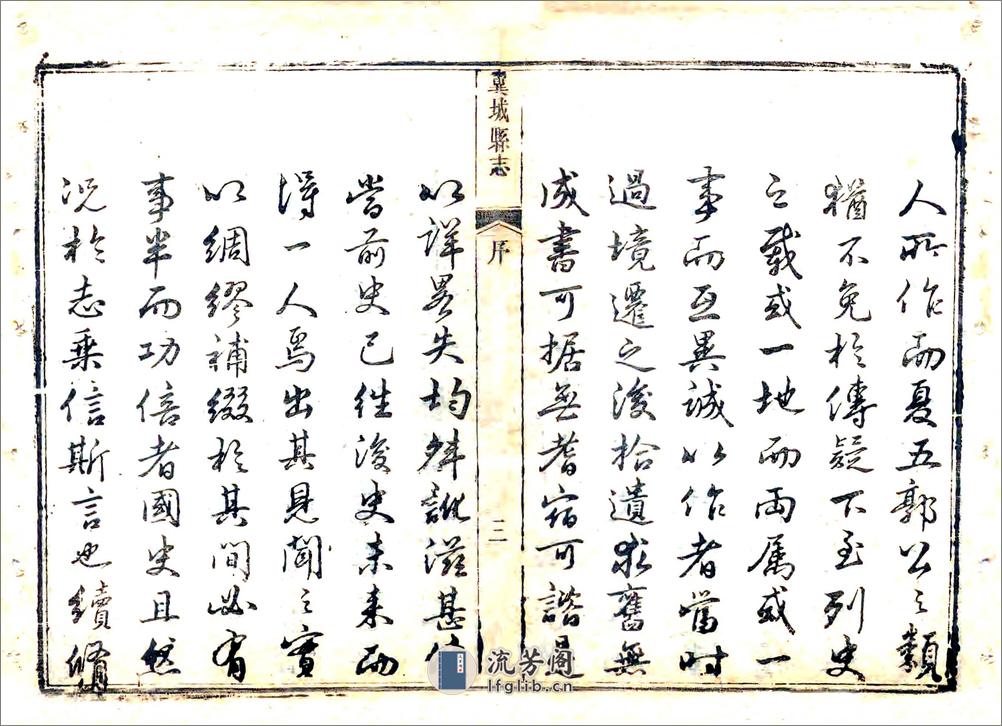 人所作而夏五郭公之類
猶不免於傳疑下至列史
之載或一地而兩属或一
事而互異誠以作者當时
過境遷之後拾遺求舊無
成書可据無耆宿可諮是
翼城縣志
序
三
以詳畧失均舛訛滋甚使
當前史已往後史未来而
得一人焉出其見聞之實
以綢繆補綴於其間必有
事半而功倍者國史且然
況於志乗信斯言也續脩
流芳阁
lfglib.cn